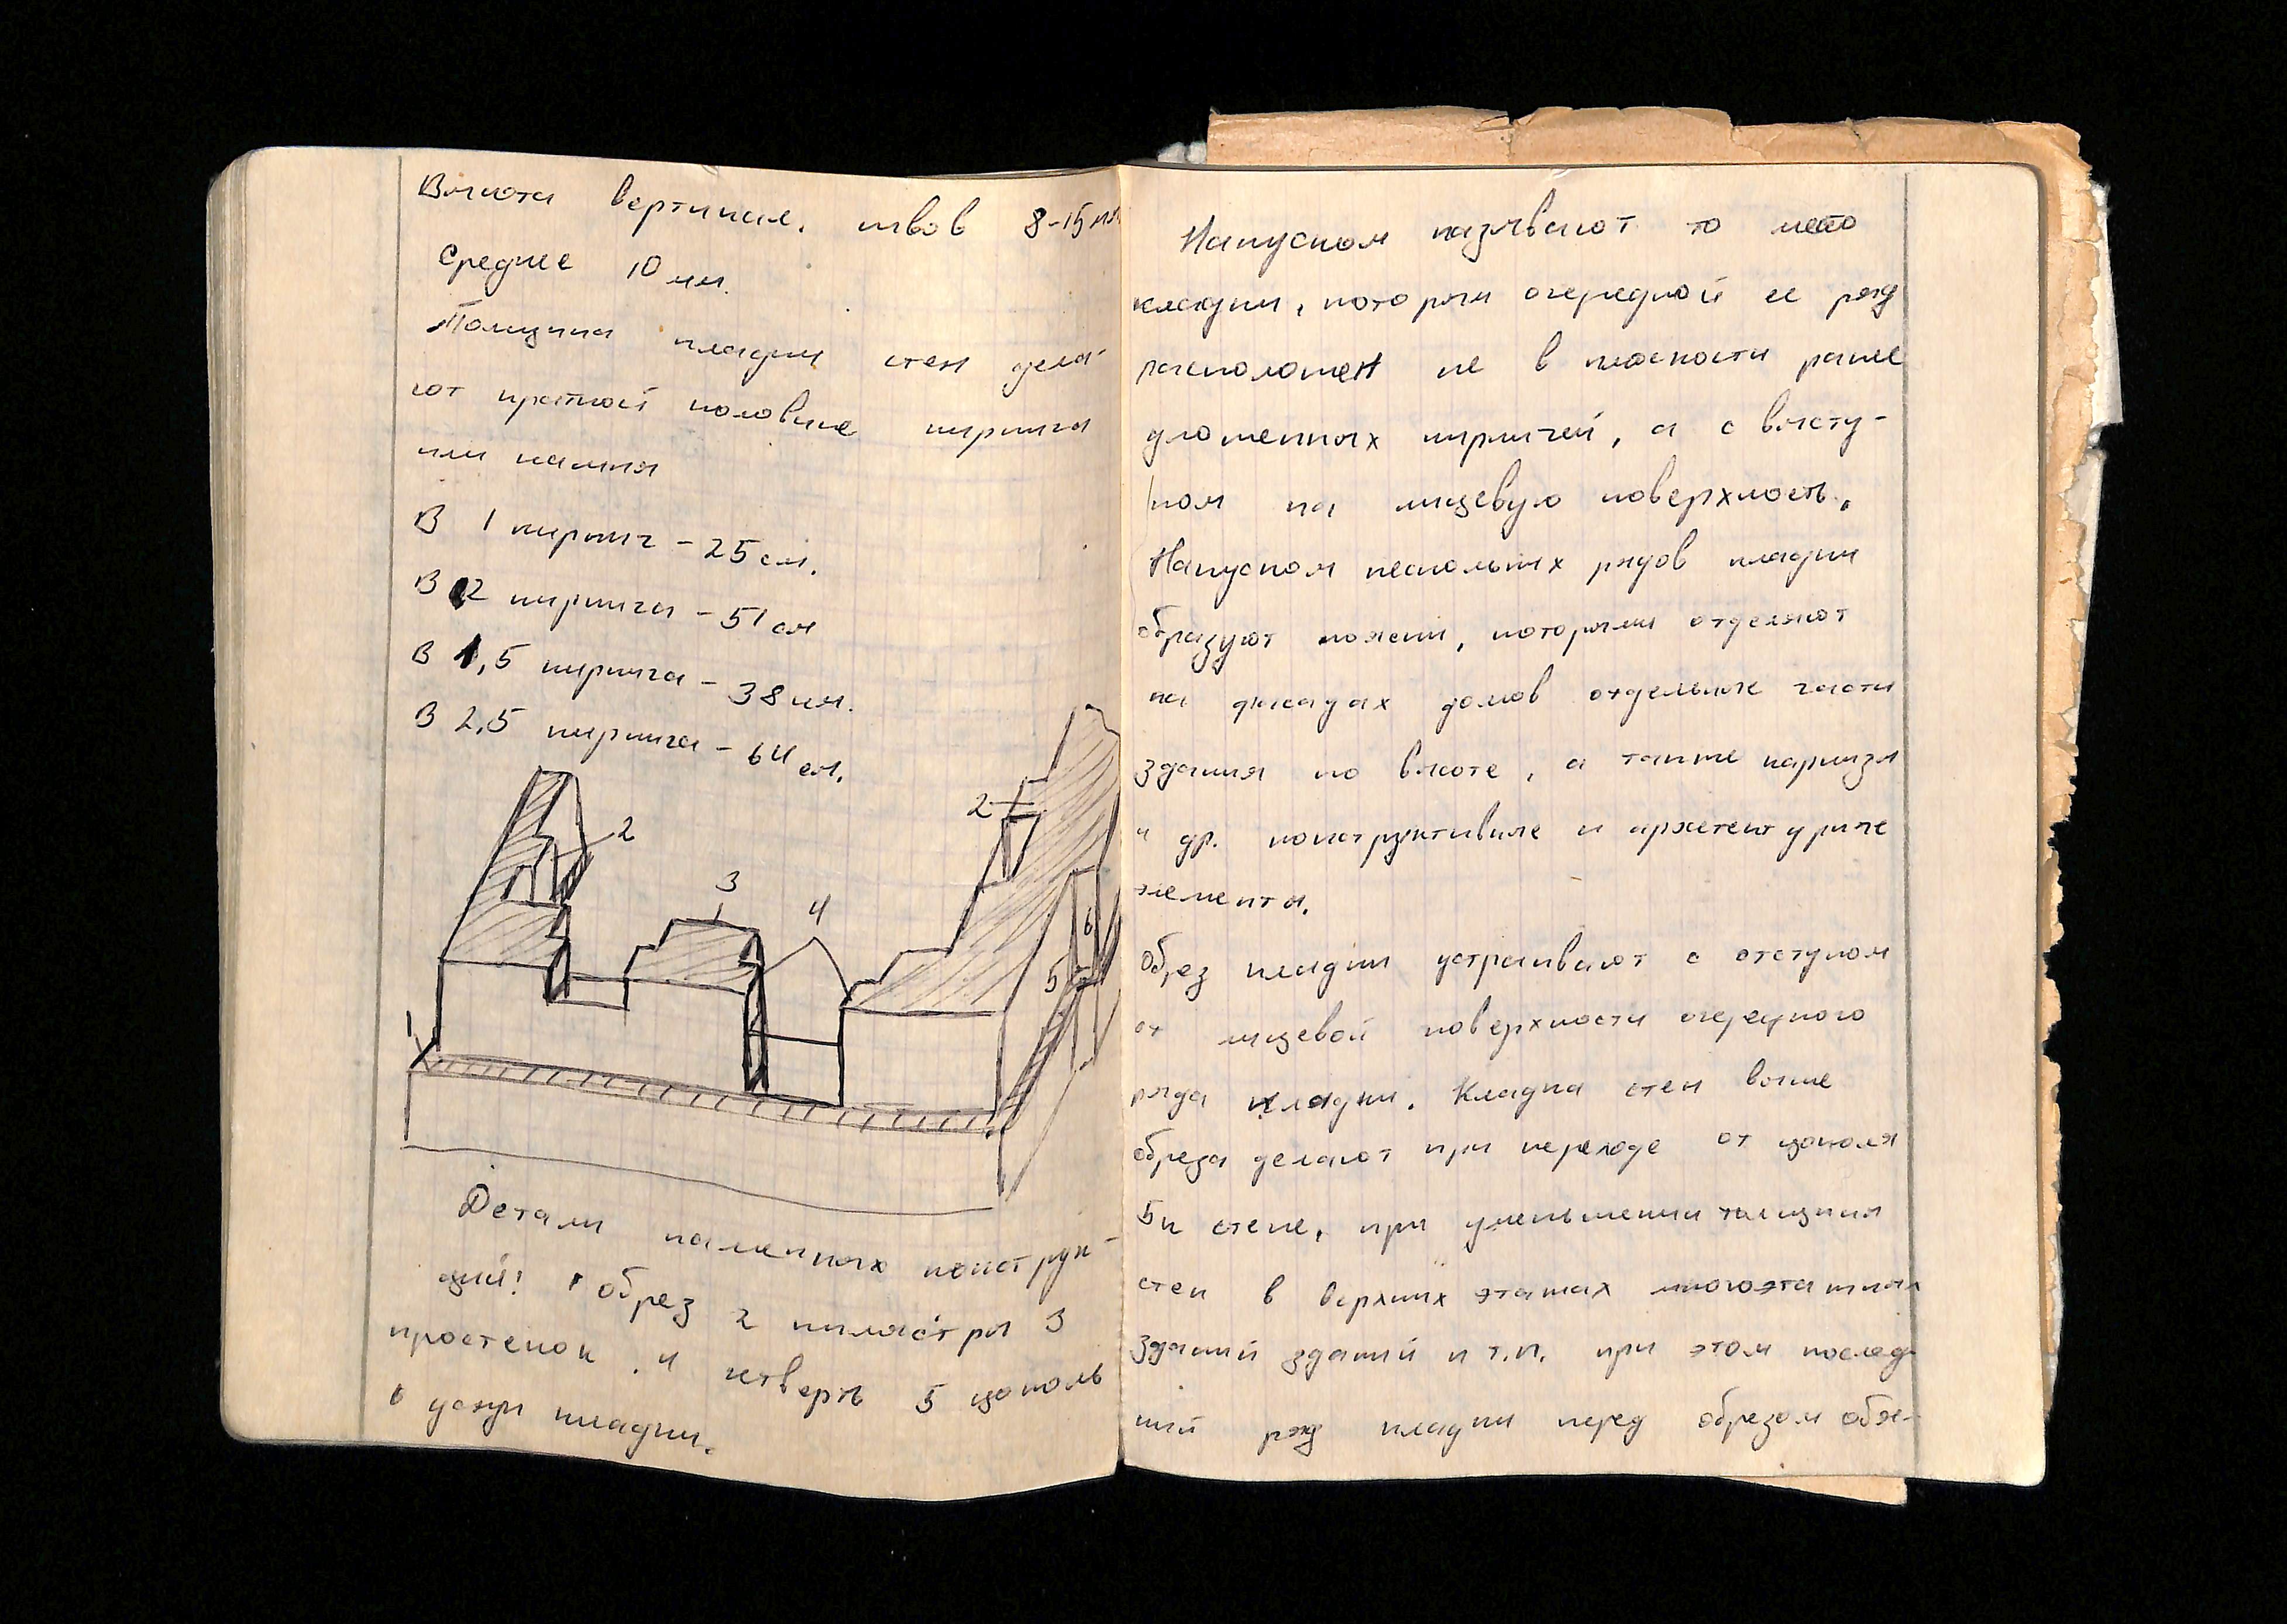 Высота вертикал. швов 8-15мм
Среднее 10 мм.
Толщина кладки стен дела-
ют кратной половине кирпича
или камня
В 1 кирпич - 25 см.
В 2 кирпича - 51 см
В 1,5 кирпича - 38 см.
В 2,5 кирпича - 64 см.
2
2
3
4
6
5
1
Детали каменных конструк-
ций! 1 обрез 2 пилястры 3
простенок . 4 четверть 5 цоколь
6 уступ кладки.
Напуском называют то место
кладки, которы очередной ее ряд
расположен не в плоскости ранее
уложенных кирпичей, а с высту-
пом на лицевую поверхность.
Напуском нескольких рядов кладки
образуют пояски, которыми отделяют
на фасадах домов отдельные части
здания по высоте, а также карнизы
и др. конструктивные и архетектурные
элементы.
Обрез кладки устраивают с отступом
от лицевой поверхности очередного
ряда кладки. Кладка стен выше
обреза делают при переходе от цоколя
5 к стене, при уменьшении толщины
стен в верхних этажах многоэтажных
зданий зданий и т.п. при этом послед-
ний ряд кладки перед обрезом обя-